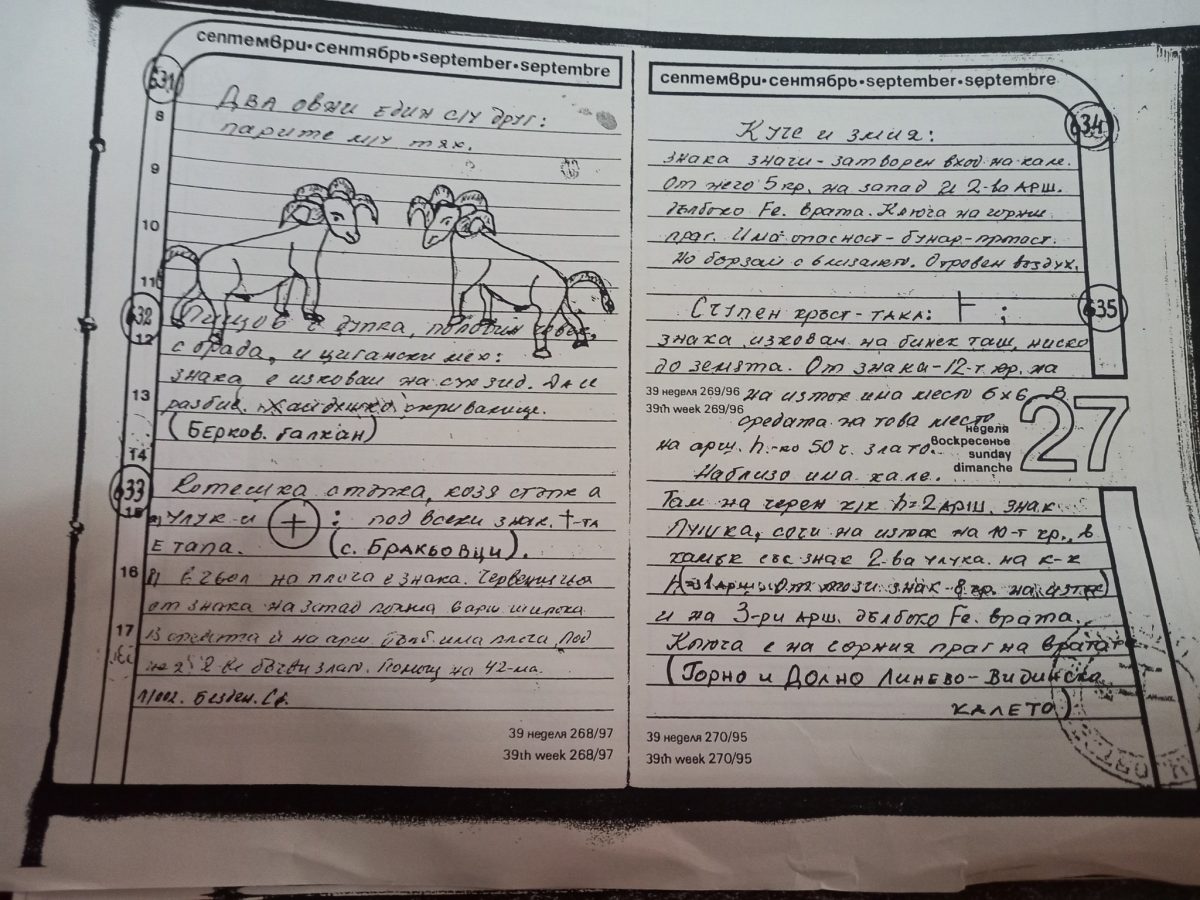 септември•сентябрь•september•septembre
631
Два овни един с/у друг:
парите м/у тях.
8
9
10
11
632
Пищов и дупка, половин човек,
12
с брада, и цигански мех:
знака е изкован на сух зид. Да и
13
разбие. Хайдушко скривалище.
(Берков. балкан)
14
633
Котешка стъпка, козя стъпка
15
улук и + : под всеки знак. †-та
Етапа. (с. Бракьовци).
16
на плоча е знака.
от знака на запад
17
В средата и на арш. дълб. има плоча. Под
злато. Помощ на 42-ма.
39 неделя 268/97
39th week 268/97
септември•сентябрь•september•septembre
634
Куче и змия:
знака значи - затворен вход на кале.
От него 5 кр. на запад и 2-ва арш.
дълбоко Fe. врата. Ключа на горния
праг. Има опасност - бунар - пропаст.
Не бързай с влизането. Отровен въздух.
635
Счупен кръст - така: ⊦ ;
знака изкован на бинек таш, ниско
до земята. От знака - 12-т. кр. на
39 неделя 269/96
на изток има место 6х6. В
39th week 269/96
средата на това место
27
неделя
на арш. h.-ко 50 г. злато.
воскресенье
sunday
dimanche
Наблизо има кале.
Там на черен к/к h=2 арш. знак
Пушка, сочи на изток на 10-т кр., в
камък със знак 2-ва улука. на к-к
h=1 арш. От този знак - 8 кр. на изток
и на 3-ри арш. дълбоко Fe. врата.
Ключа е на горния праг на вратата
(Горно и Долно Линево - Видинска
калето)
39 неделя 270/95
39th week 270/95